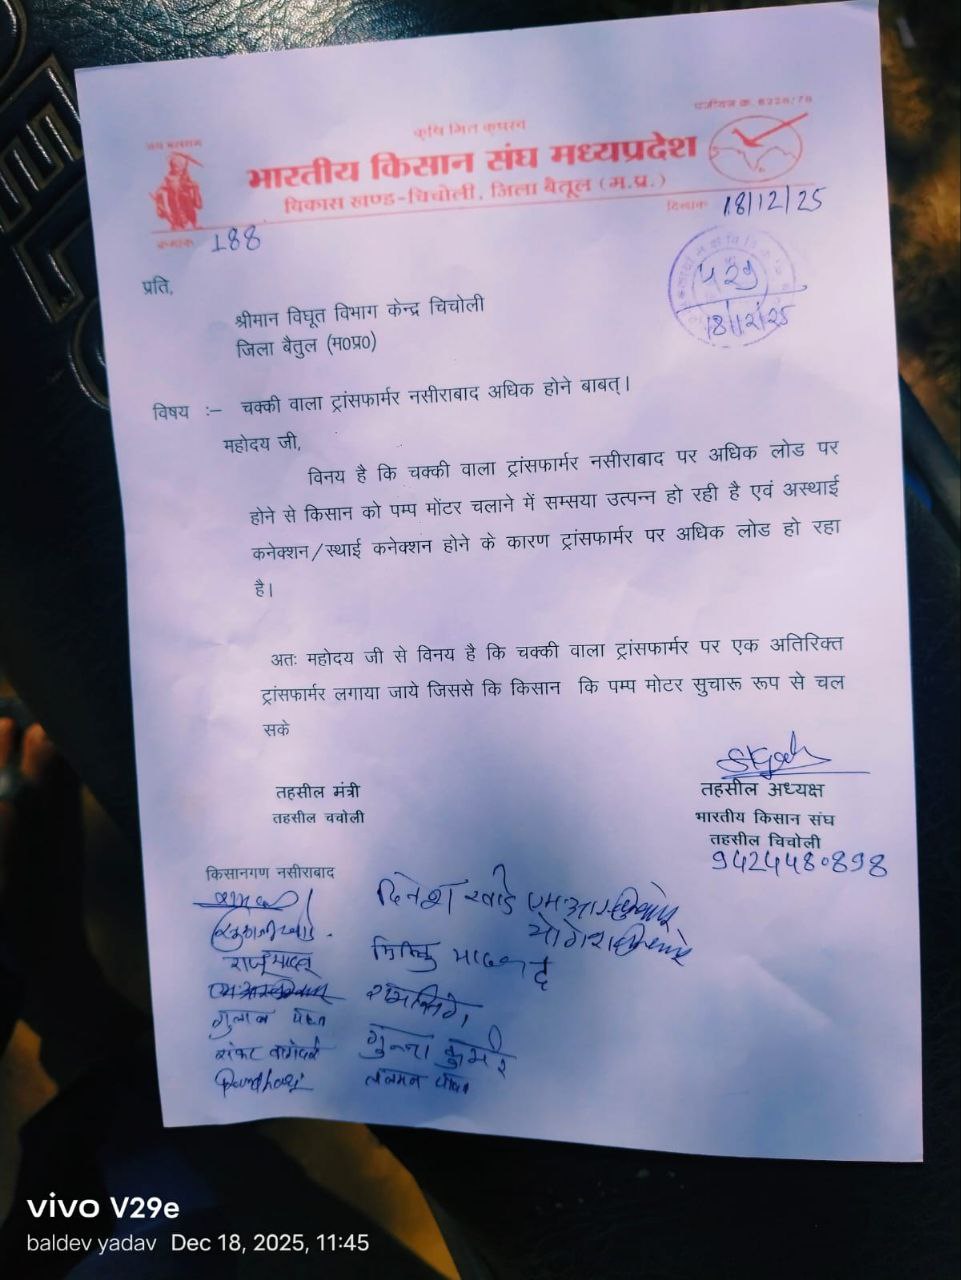 पंजीयन क्र. 8228/78
कृषि मित कृषस्व
जय बलराम
भारतीय किसान संघ मध्यप्रदेश
विकास खण्ड-चिचोली, जिला बैतूल (म.प्र.)
क्रमांक 188
दिनांक 18/12/25
529
18/12/25
प्रति,
श्रीमान विघूत विभाग केन्द्र चिचोली
जिला बैतुल (म0प्र0)
विषय :– चक्की वाला ट्रांसफार्मर नसीराबाद अधिक होने बाबत्।
महोदय जी,
विनय है कि चक्की वाला ट्रांसफार्मर नसीराबाद पर अधिक लोड पर
होने से किसान को पम्प मोंटर चलाने में सम्सया उत्पन्न हो रही है एवं अस्थाई
कनेक्शन/स्थाई कनेक्शन होने के कारण ट्रांसफार्मर पर अधिक लोड हो रहा
है।
अतः महोदय जी से विनय है कि चक्की वाला ट्रांसफार्मर पर एक अतिरिक्त
ट्रांसफार्मर लगाया जाये जिससे कि किसान कि पम्प मोटर सुचारू रूप से चल
सके
तहसील मंत्री
तहसील चचोली
तहसील अध्यक्ष
भारतीय किसान संघ
तहसील चिचोली
9424480898
किसानगण नसीराबाद
दिनेश
राजू यादव
गुलाब
गुन्जा कुमरे
Pandhari
vivo V29e
baldev yadav Dec 18, 2025, 11:45